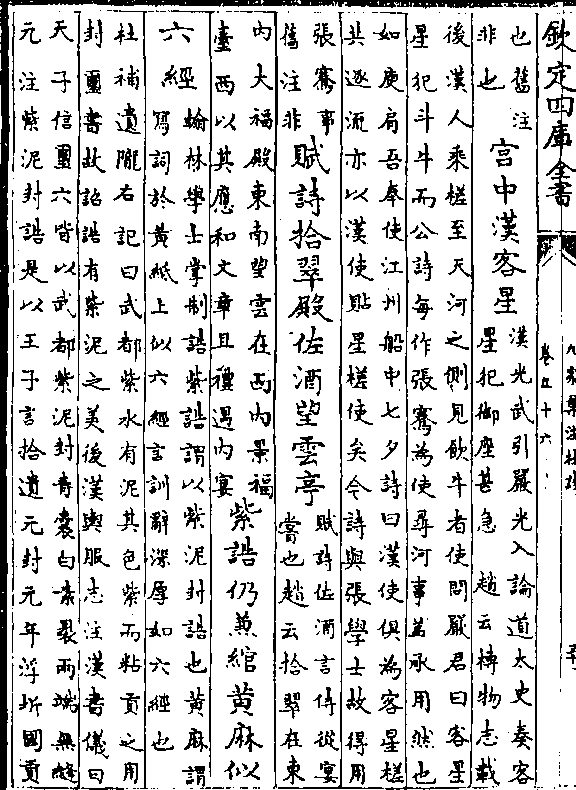 欽定四庫全書
九家集注杜詩
也舊注
非也
宮中漢客星
漢光武引嚴光入論道太史奏客
星犯御座甚急 趙云博物志載
後漢人乘槎至天河之側見飲牛者使問嚴君曰客星
星犯斗牛而公詩每作張騫為使尋河事蓋承用然也
如庾肩吾奉使江州船中七夕詩曰漢使俱為客星槎
共逐流亦以漢使貼星槎使矣今詩與張學士故得用
張騫事
舊注非
賦詩拾翠殿佐酒望雲亭
賦詩佐酒言侍從宴
嘗也趙云拾翠在東
內大福殿東南望雲在西內景福
臺西以其應和文章且禮遇內宴
紫誥仍兼綰黃麻似
六經
翰林學士掌制誥紫誥謂以紫泥封誥也黃麻謂
寫詞於黃紙上似六經言訓辭深厚如六經也
杜補遺隴右記曰武都紫水有泥其色紫而粘貢之用
封璽書故詔誥有紫泥之美後漢輿服志注漢書儀曰
天子信璽六皆以武都紫泥封青囊白素裏兩端無縫
元注紫泥封誥是以王子言拾遺元封元年浮圻國貢